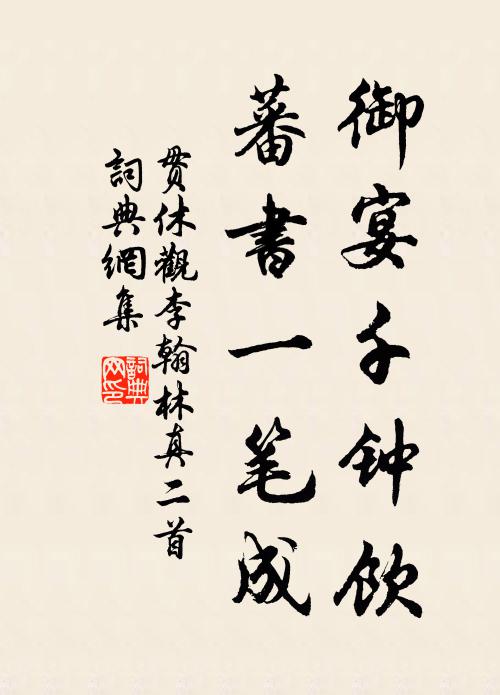 御宴千钟饮
蕃書一笔成
贯休觀李翰林真二首
詞典網集
詞典网印